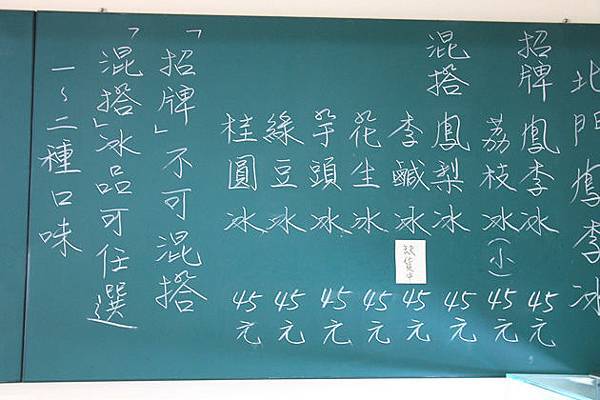 北門鳳李冰
招牌 鳳李冰 45元
荔枝冰(小) 45元
混搭 鳳梨冰 45元
李鹹冰 缺貨中 45元
花生冰 45元
芋頭冰 45元
綠豆冰 45元
桂圓冰 45元
「招牌」不可混搭
「混搭」冰品可任選
一~二種口味